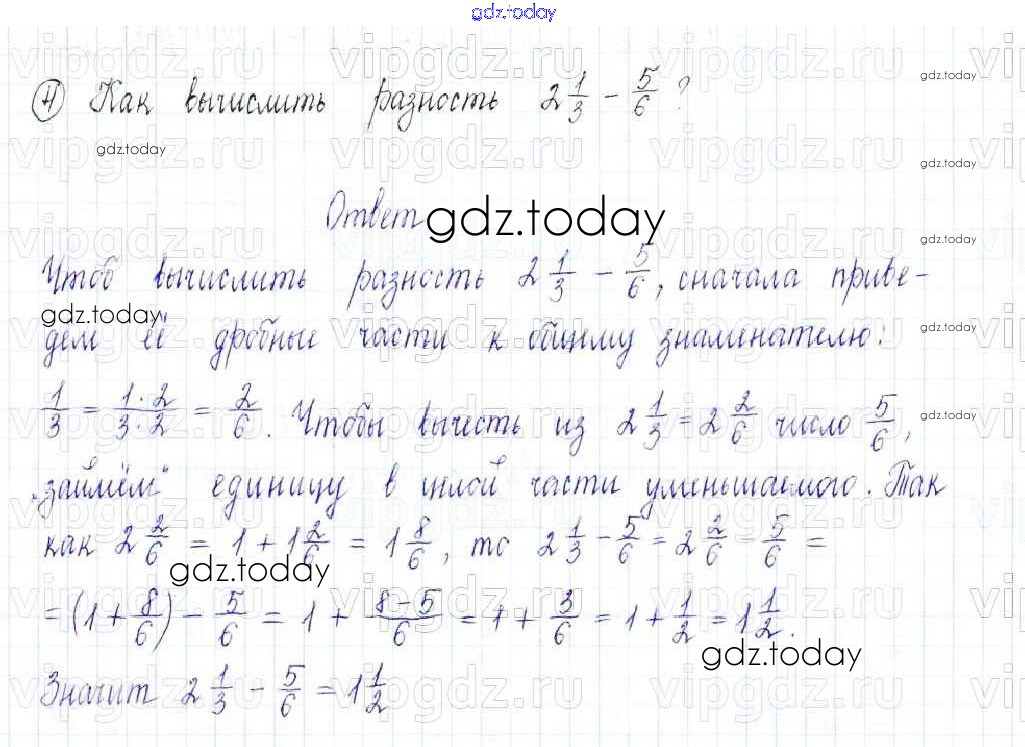 gdz.today
④ Как вычислить разность 2 1/3 - 5/6 ?
gdz.today
gdz.today
gdz.today
Ответ gdz.today
gdz.today
Чтоб вычислить разность 2 1/3 - 5/6, сначала приве-
gdz.today
дем её дробные части к общему знаменателю:
gdz.today
1/3 = 1·2/3·2 = 2/6. Чтобы вычесть из 2 1/3 = 2 2/6 число 5/6,
gdz.today
„займём" единицу в целой части уменьшаемого. Так
как 2 2/6 = 1 + 1 2/6 = 1 8/6, то 2 1/3 - 5/6 = 2 2/6 - 5/6 =
gdz.today
= (1 + 8/6) - 5/6 = 1 + 8-5/6 = 1 + 3/6 = 1 + 1/2 = 1 1/2.
gdz.today
Значит 2 1/3 - 5/6 = 1 1/2
vipgdz.ru